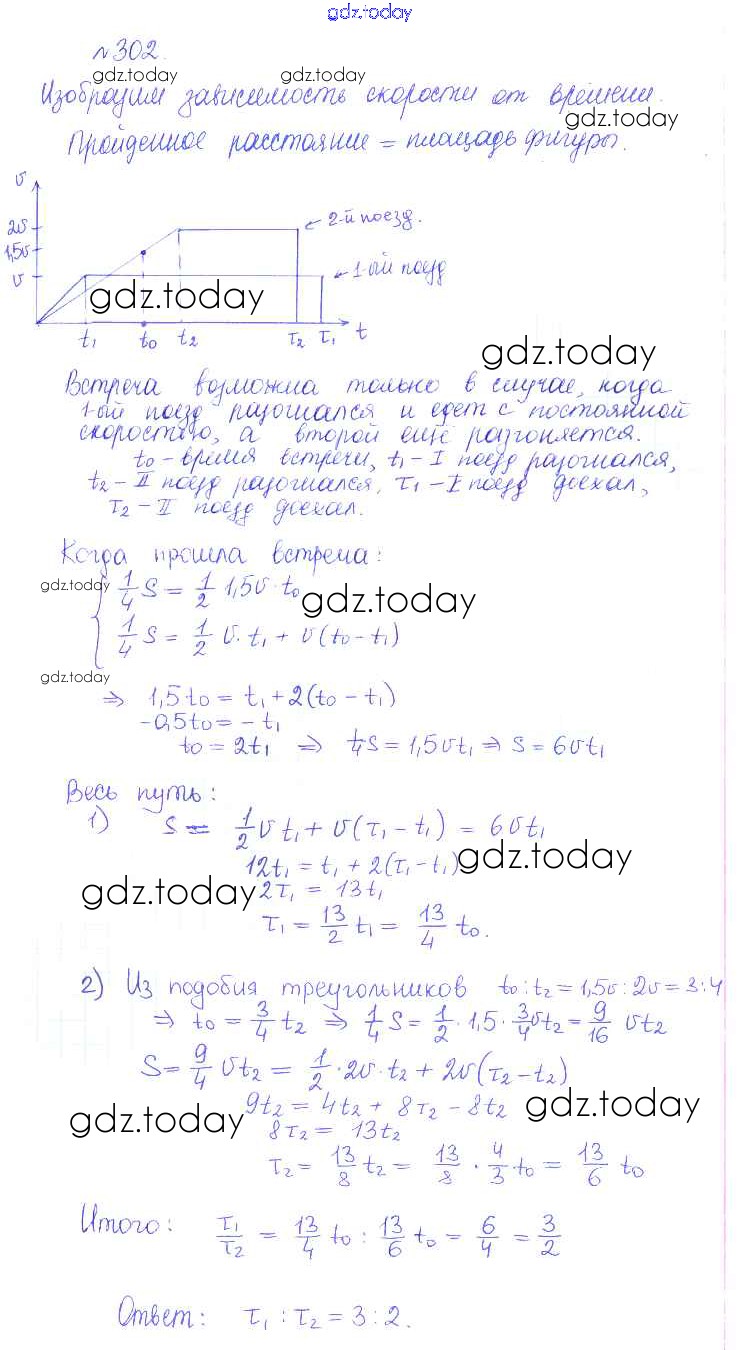 gdz.today
№302.
gdz.today gdz.today
Изобразим зависимость скорости от времени.
gdz.today
Пройденное расстояние = площадь фигуры.
v
2v
1,5v
v
2-й поезд.
1-ый поезд
gdz.today
t₁ t₀ t₂ τ₂ τ₁ t
gdz.today
Встреча возможна только в случае, когда
1-ый поезд разогнался и едет с постоянной
скоростью, а второй ещё разгоняется.
t₀ - время встречи, t₁ - I поезд разогнался,
t₂ - II поезд разогнался, τ₁ - I поезд доехал,
τ₂ - II поезд доехал.
Когда прошла встреча:
gdz.today
1/4 S = 1/2 1,5v · t₀
gdz.today
1/4 S = 1/2 v · t₁ + v(t₀ - t₁)
gdz.today
⇒ 1,5t₀ = t₁ + 2(t₀ - t₁)
-0,5t₀ = - t₁
t₀ = 2t₁ ⇒ 1/4 S = 1,5vt₁ ⇒ S = 6vt₁
Весь путь:
1) S = 1/2 v t₁ + v(τ₁ - t₁) = 6vt₁
12t₁ = t₁ + 2(τ₁ - t₁)
gdz.today
gdz.today
2τ₁ = 13t₁
τ₁ = 13/2 t₁ = 13/4 t₀.
2) Из подобия треугольников t₀ : t₂ = 1,5v : 2v = 3:4
⇒ t₀ = 3/4 t₂ ⇒ 1/4 S = 1/2 · 1,5 · 3/4 vt₂ = 9/16 vt₂
S = 9/4 vt₂ = 1/2 · 2v · t₂ + 2v(τ₂ - t₂)
9t₂ = 4t₂ + 8τ₂ - 8t₂
gdz.today
gdz.today
8τ₂ = 13t₂
τ₂ = 13/8 t₂ = 13/8 · 4/3 t₀ = 13/6 t₀
Итого: τ₁/τ₂ = 13/4 t₀ : 13/6 t₀ = 6/4 = 3/2
Ответ: τ₁ : τ₂ = 3 : 2.